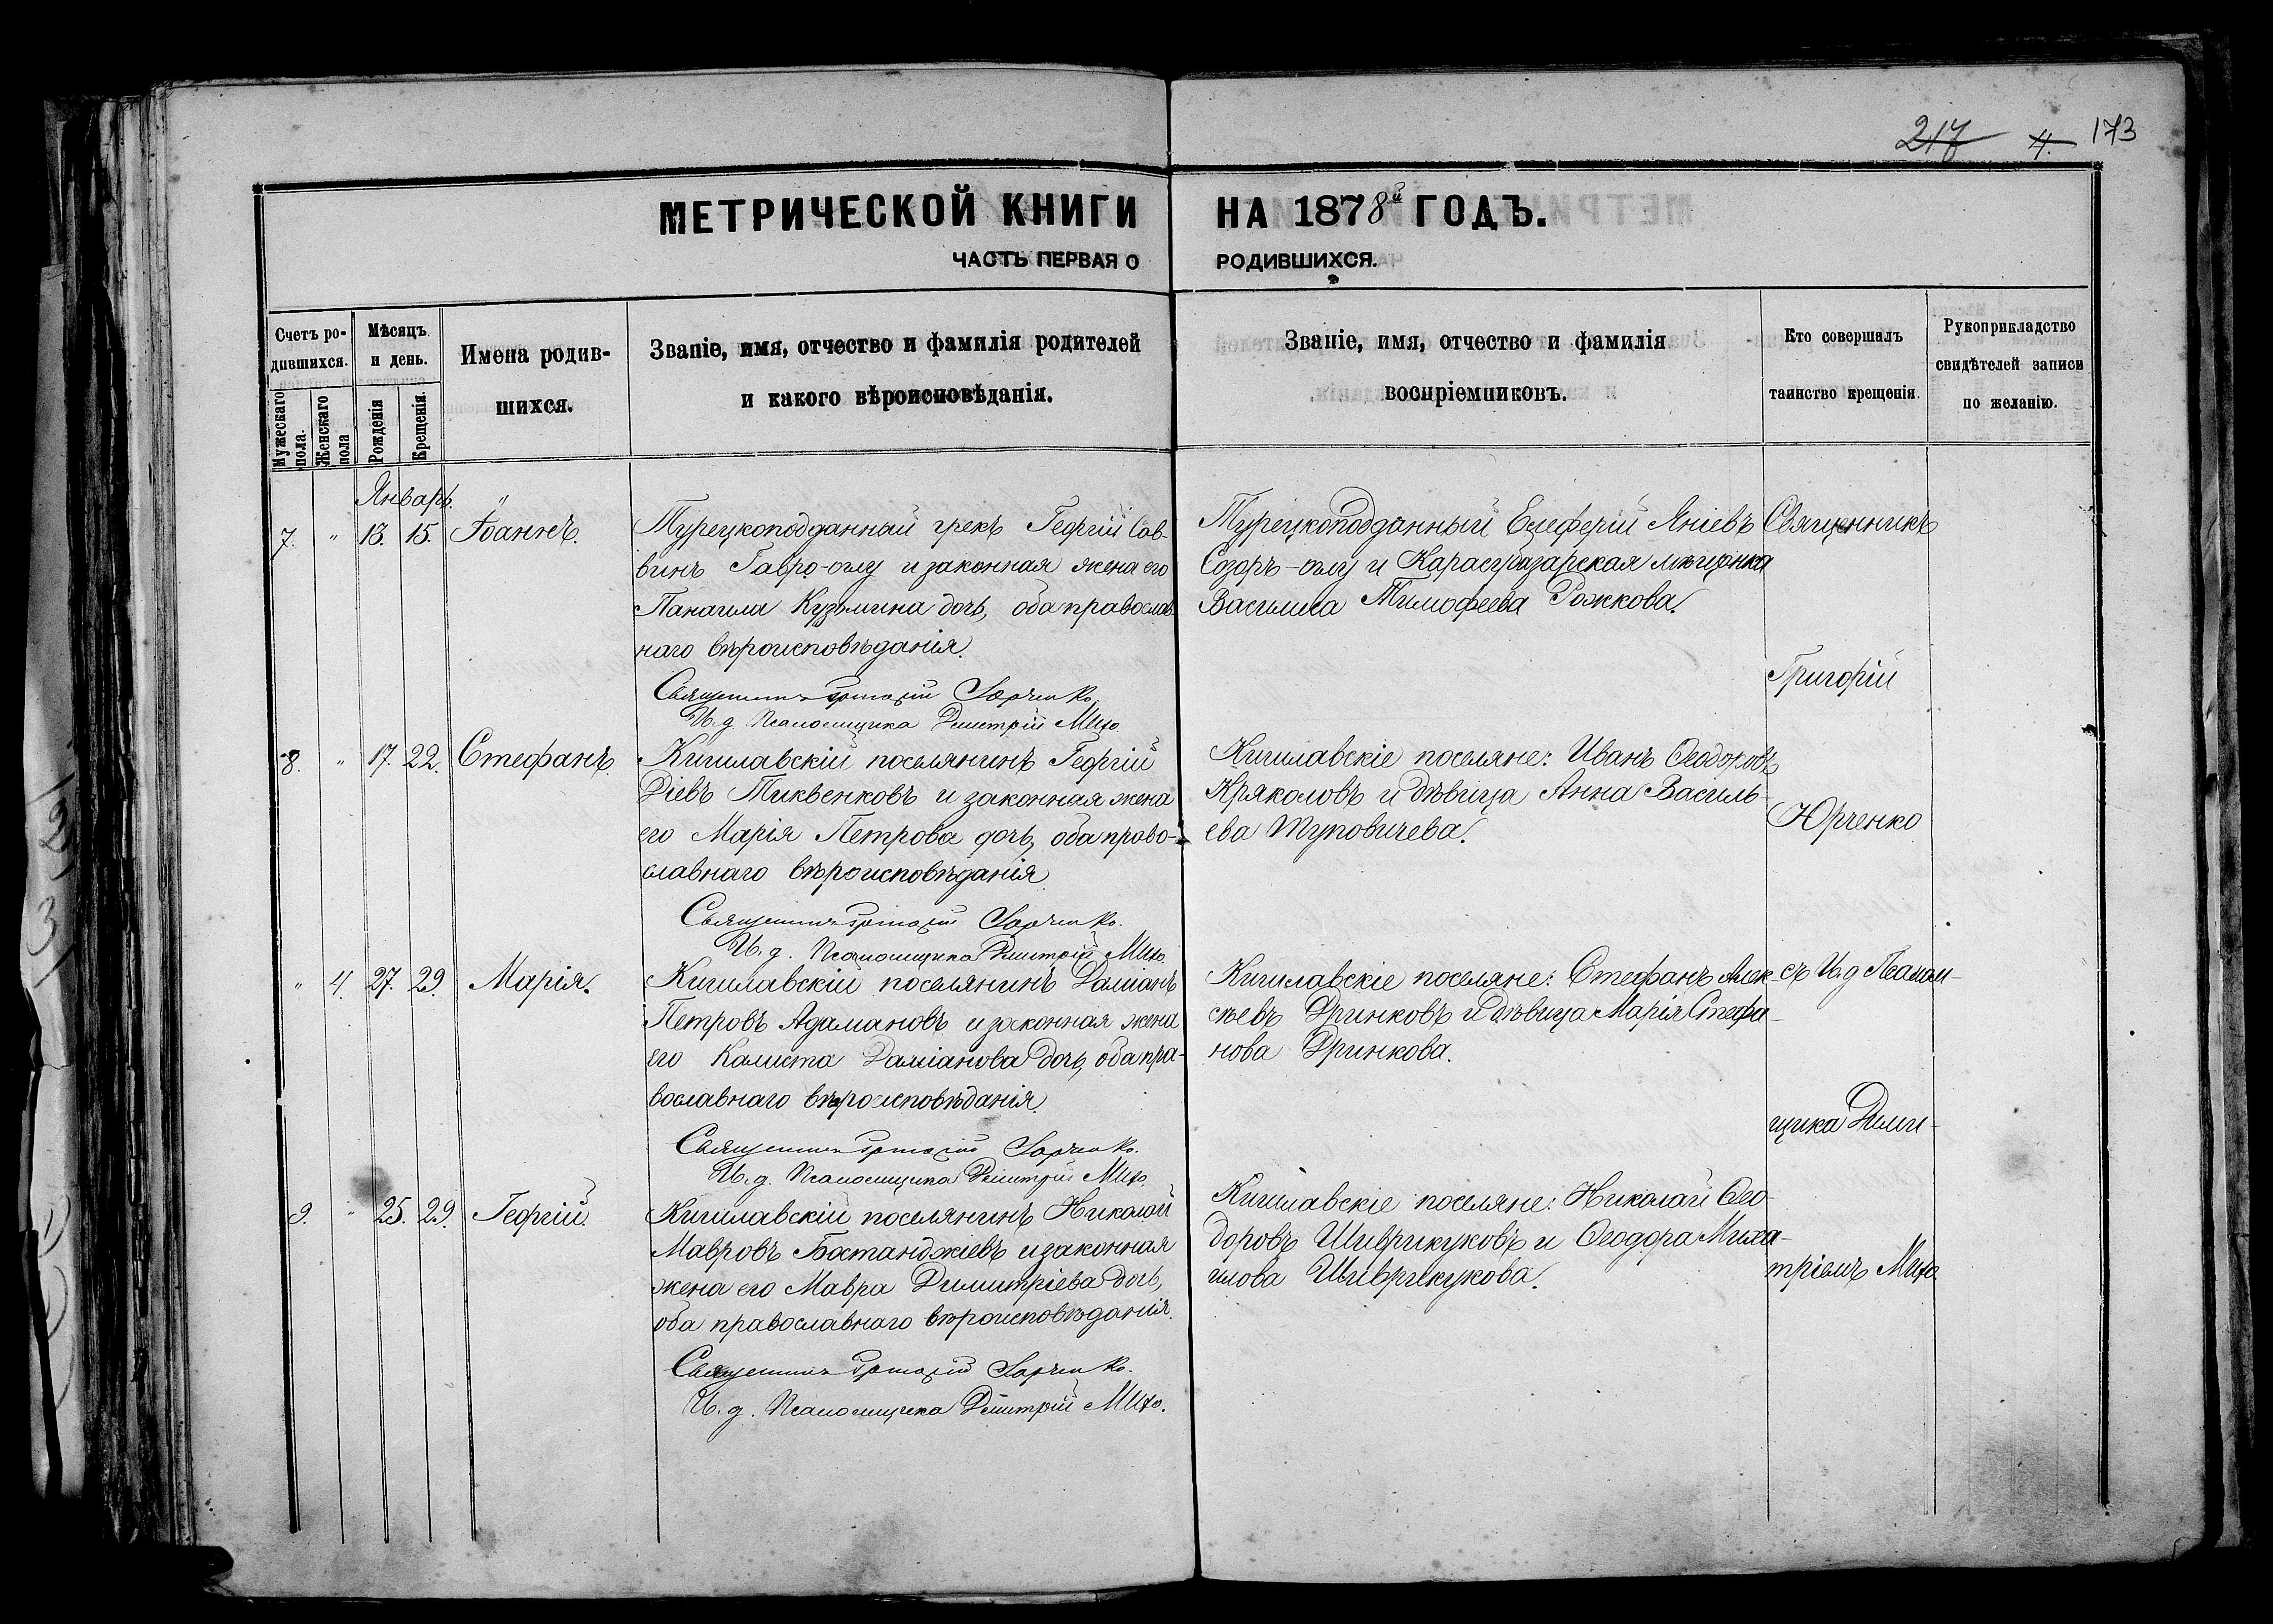 217 4. 173
МЕТРИЧЕСКОЙ КНИГИ НА 1878й ГОДЪ.
ЧАСТЬ ПЕРВАЯ О РОДИВШИХСЯ.
Счетъ ро-
дившихся.
Мужескаго пола.
Женскаго пола
Мѣсяцъ
и день.
Рожденія
Крещенія.
Имена родив-
шихся.
Званіе, имя, отчество и фамилія родителей
и какого вѣроисповѣданія.
Званіе, имя, отчество и фамилія
воспріемниковъ.
Кто совершалъ
таинство крещенія.
Рукоприкладство
свидѣтелей записи
по желанію.
Январь.
7. " 13. 15. Іоаннъ.
Турецкоподданный грекъ Георгій Сав-
винъ Гавро-оглу и законная жена его
Кузьмина дочь, оба православ
наго вѣроисповѣданія.
Священникъ Григорій Юрченко
И. д. Псаломщика Димитрій Михо.
Турецкоподданный Елеферій Яніевъ
Созоръ-оглу и Карасубазарская мѣщанка
Василиса Тимофеева Рожкова.
8. " 17. 22. Стефанъ.
Кишлавскій поселянинъ Георгій
Діевъ Тиквенковъ и законная жена
его Марія Петрова дочь, оба право-
славнаго вѣроисповѣданія
Священникъ Григорій Юрченко.
И. д. Псаломщика Димитрій Михо.
Кишлавскіе поселяне: Иванъ Ѳеодоровъ
Кряколовъ и дѣвица Анна Василь-
ева Туповичева.
" 4. 27. 29. Марія.
Кишлавскій поселянинъ Даміанъ
Петровъ Адамановъ и законная жена
его Калиста Даміанова дочь, оба пра-
вославнаго вѣроисповѣданія.
Священникъ Григорій Юрченко.
И. д. Псаломщика Димитрій Михо.
Кишлавскіе поселяне: Стефанъ Алек-
сѣевъ Дринковъ и дѣвица Марія Стефа-
нова Дринкова.
9. " 25. 29. Георгій.
Кишлавскій поселянинъ Николай
Мавровъ Бостанджіевъ и законная
жена его Мавра Димитріева дочь,
оба православнаго вѣроисповѣданія.
Священникъ Григорій Юрченко.
И. д. Псаломщика Димитрій Михо.
Кишлавскіе поселяне: Николай Ѳео-
доровъ Шиврикуковъ и Ѳеодора Миха-
илова Шиврикукова.
Священникъ
Григорій
Юрченко
съ И. д Псалом-
щика Дими-
тріемъ Михо.